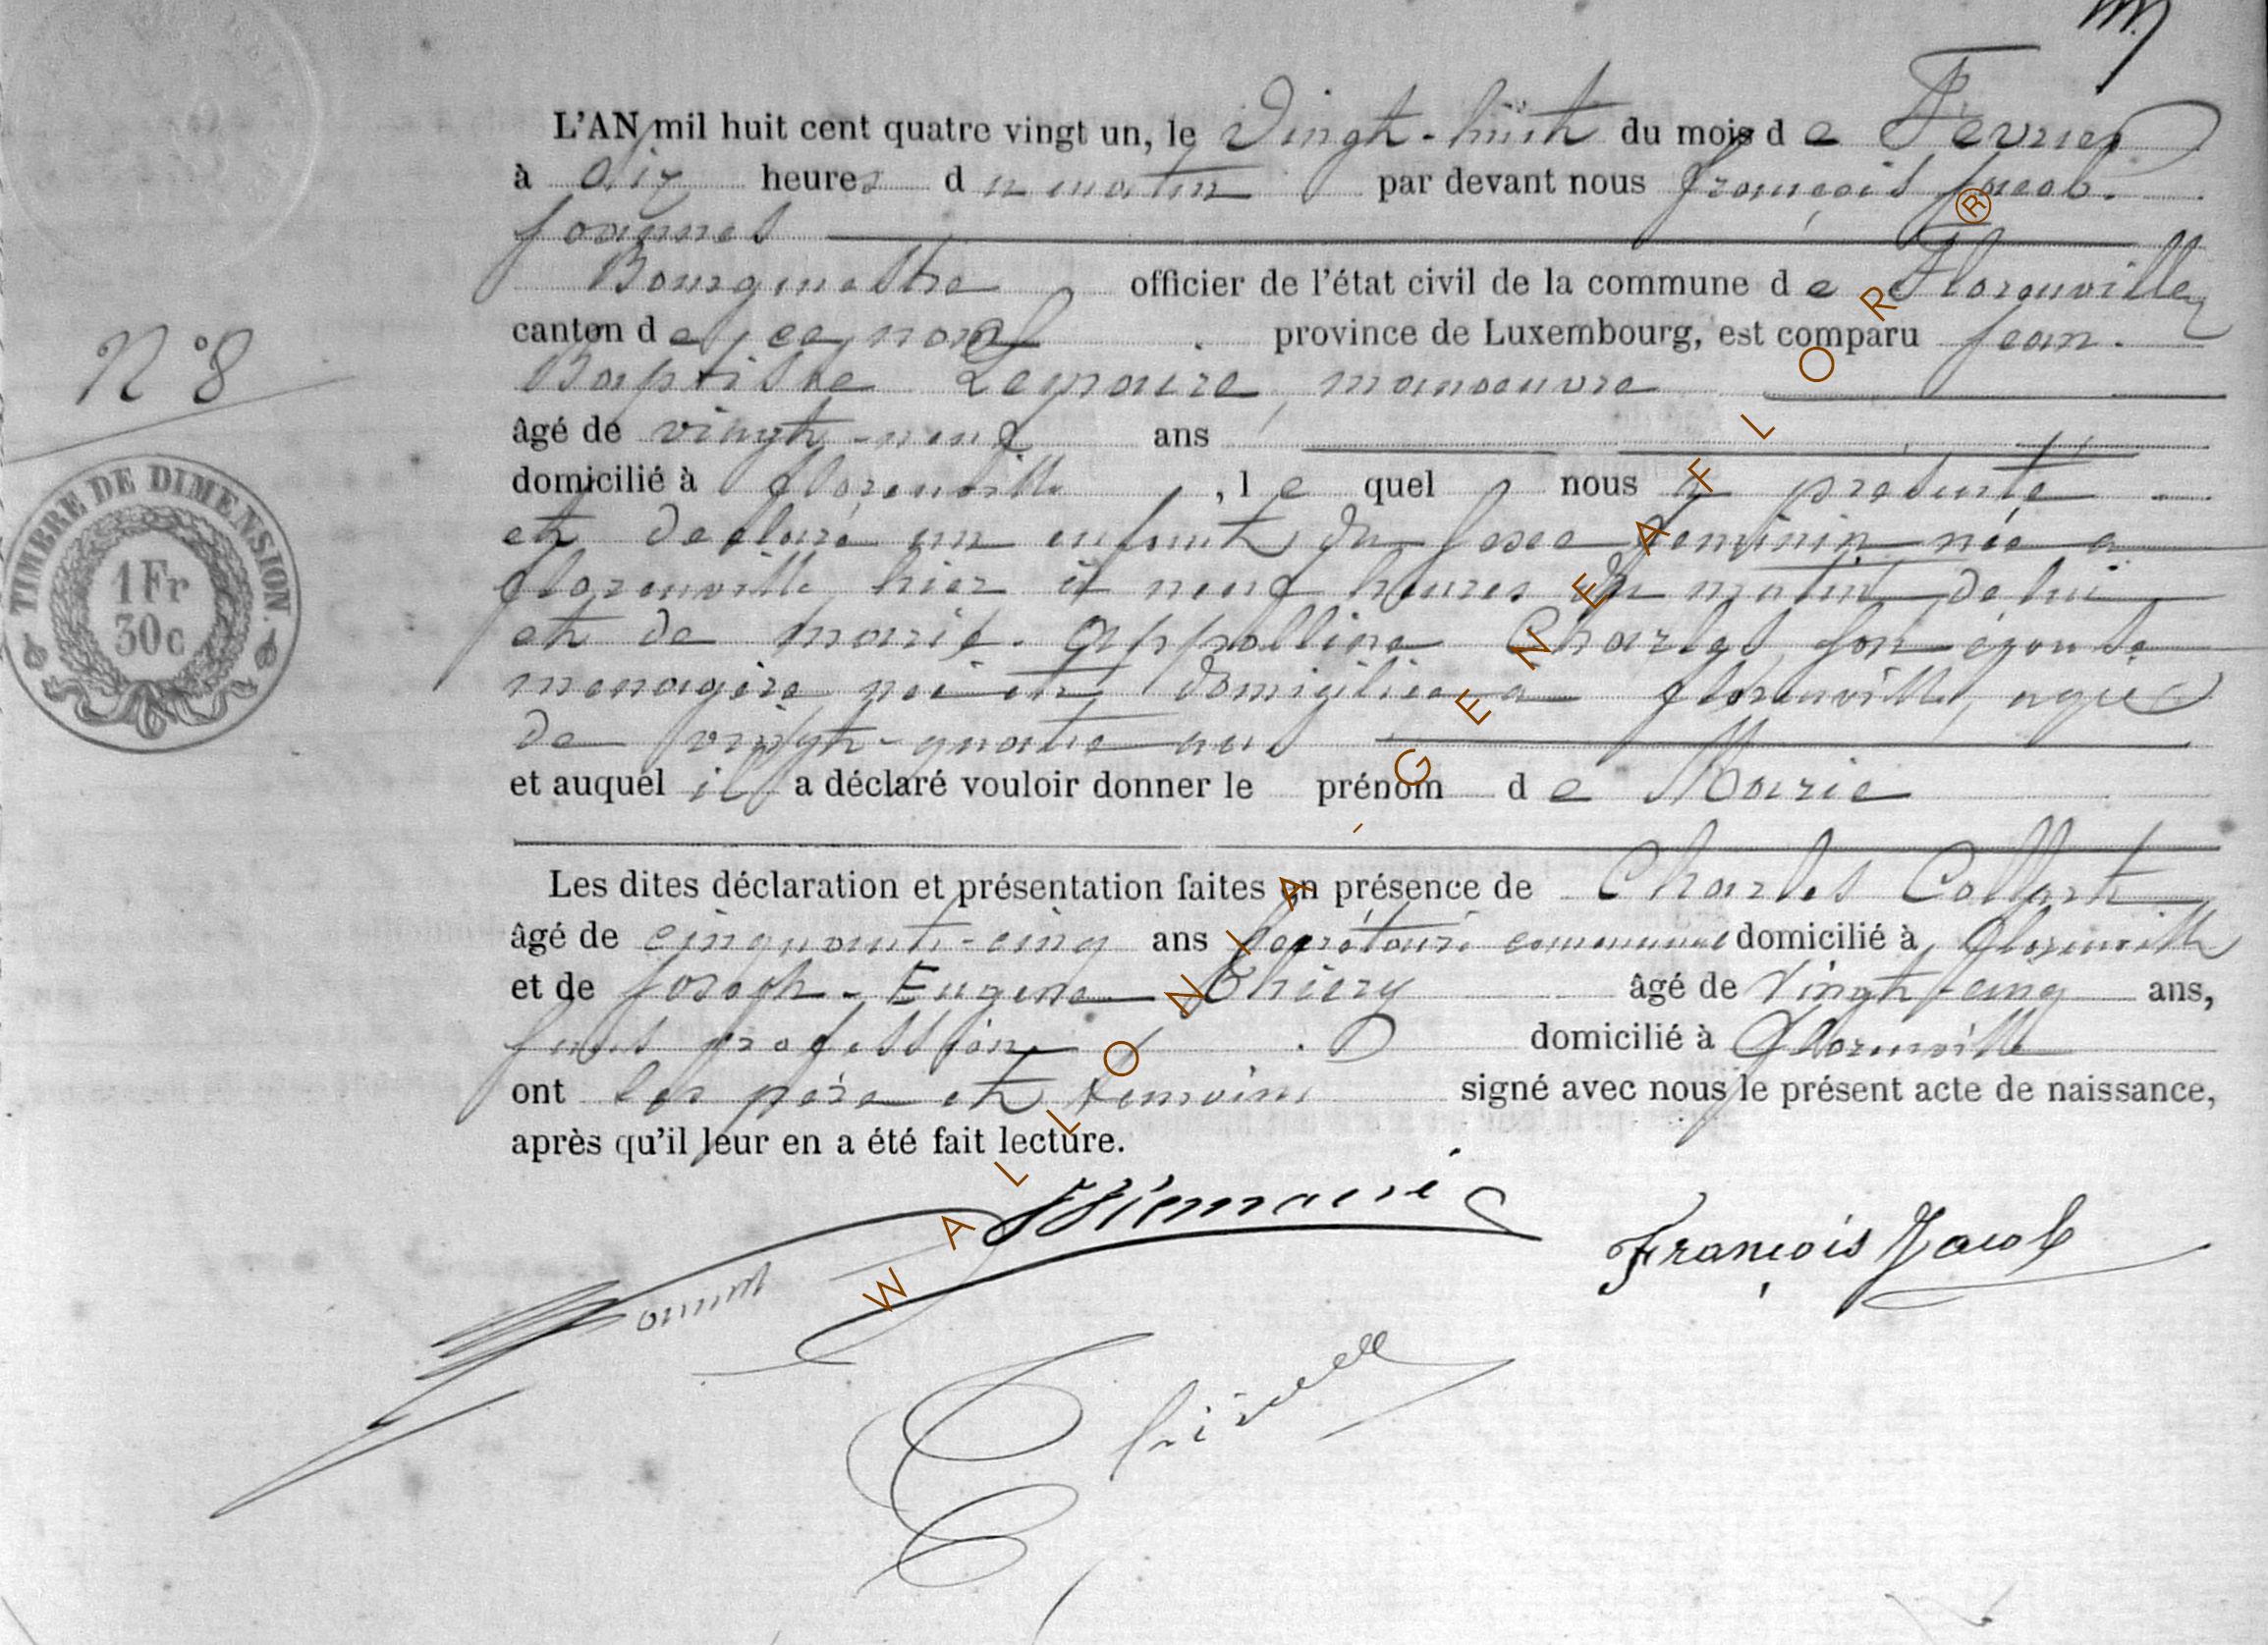 L'AN mil huit cent quatre vingt un, le Vingt-huit du mois de Fevrier
à dix heures du matin par devant nous François Jacob.
Bourgmestre officier de l'état civil de la commune de Florenville
canton de ce nom province de Luxembourg, est comparu Jean.
N° 8
Baptiste Lemaire, manoeuvre
âgé de vingt-neuf ans
domicilié à Florenville, le quel nous a présenté
TIMBRE DE DIMENSION.
1 Fr
30c
et declaré un enfant du sexe feminin née a
Florenville hier à neuf heures du matin de lui
et de marie. Appolline Charles son épouse
menagère née et domiciliée a Florenville, agée
de vingt-quatre ans
et auquel il a déclaré vouloir donner le prénom de Marie
Les dites déclaration et présentation faites en présence de Charles Collart
âgé de cinquante-cinq ans secrétaire communal domicilié à Florenville
et de Joseph-Eugene Thiery âgé de Vingt-cinq ans,
sans profession domicilié à Florenville
ont les père et temoins signé avec nous le présent acte de naissance,
après qu'il leur en a été fait lecture.
François Jacob
WALLONIA - GENEAFLOR ®